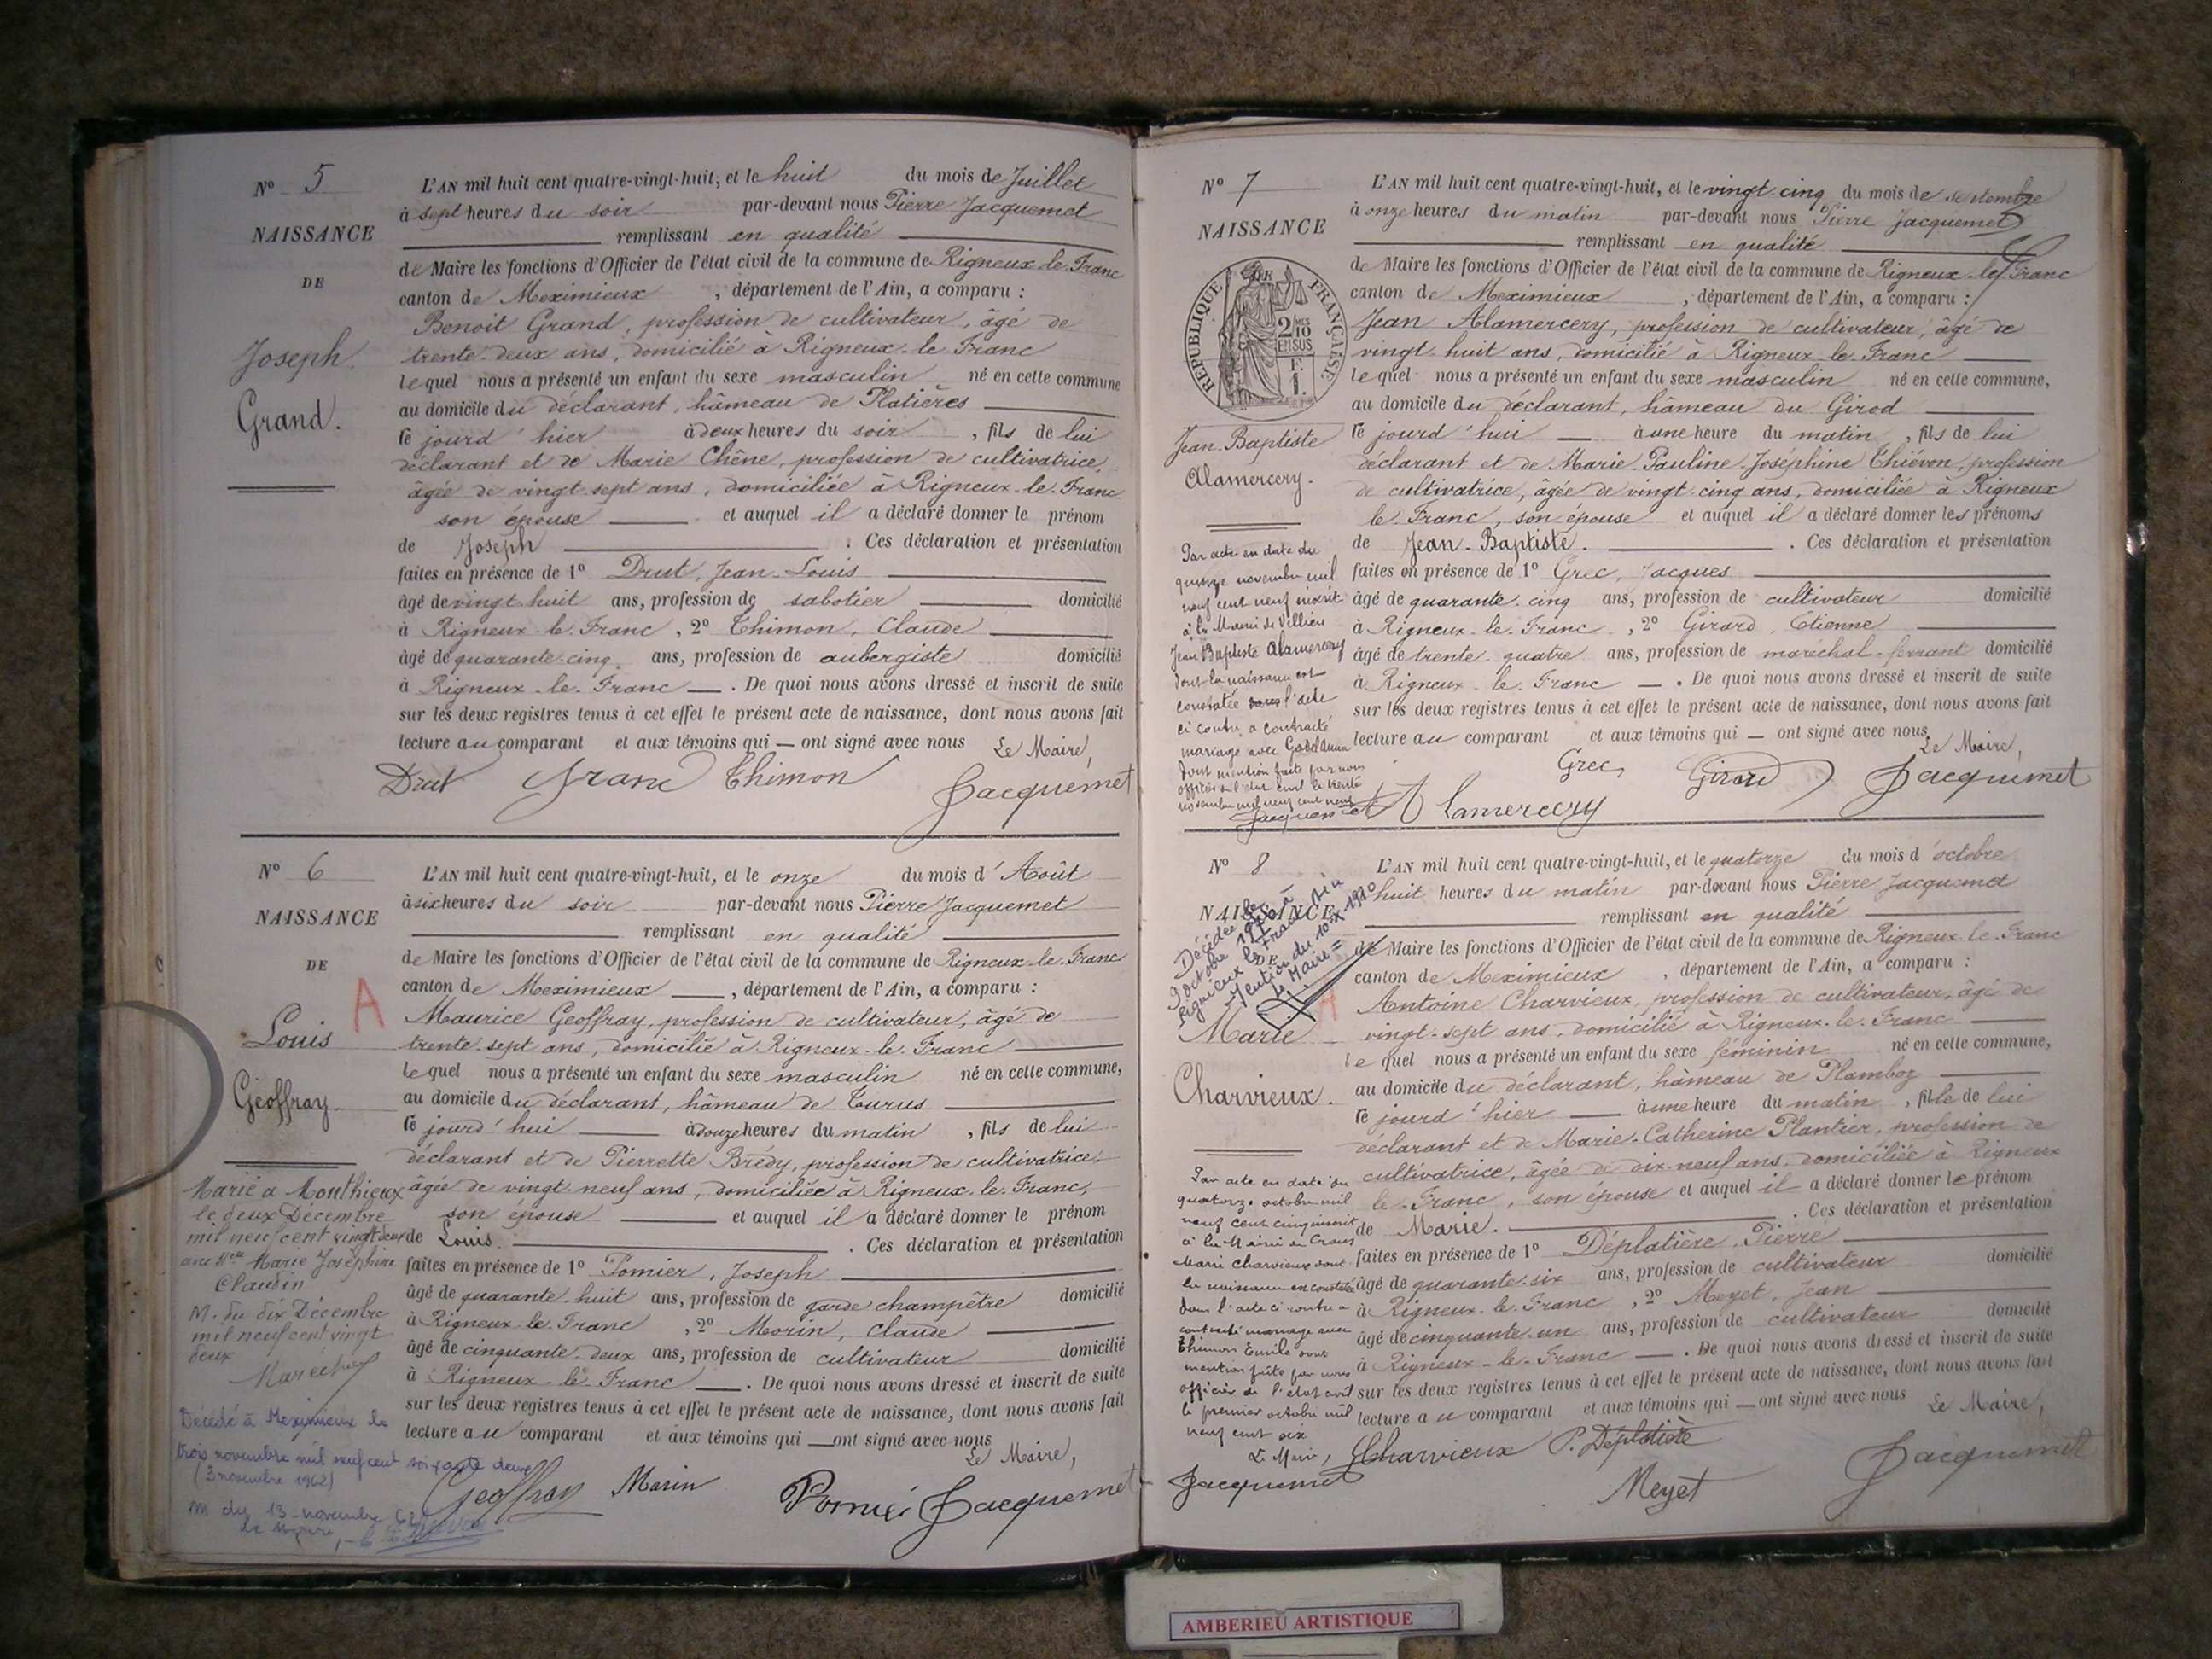 Nº 5
NAISSANCE
DE
Joseph
Grand.
L'AN mil huit cent quatre-vingt-huit, et le huit du mois de Juillet
à sept heures du soir par-devant nous Pierre Jacquemet
remplissant en qualité
de Maire les fonctions d'Officier de l'état civil de la commune de Rigneux-le-Franc
canton de Meximieux, département de l'Ain, a comparu :
Benoit Grand, profession de cultivateur, âgé de
trente-deux ans, domicilié à Rigneux-le-Franc
lequel nous a présenté un enfant du sexe masculin né en cette commune
au domicile du déclarant, hâmeau de Platières
le jourd'hier à deux heures du soir, fils de lui
déclarant et de Marie Chêne, profession de cultivatrice,
âgée de vingt-sept ans, domiciliée à Rigneux-le-Franc
son épouse et auquel il a déclaré donner le prénom
de Joseph. Ces déclaration et présentation
faites en présence de 1º Drut, Jean-Louis
âgé de vingt-huit ans, profession de sabotier domicilié
à Rigneux-le-Franc, 2º Thimon, Claude
âgé de quarante-cinq ans, profession de aubergiste domicilié
à Rigneux-le-Franc. De quoi nous avons dressé et inscrit de suite
sur les deux registres tenus à cet effet le présent acte de naissance, dont nous avons fait
lecture au comparant et aux témoins qui ont signé avec nous Le Maire,
Drut Thimon Jacquemet
Nº 6
NAISSANCE
DE
A
Louis
Geoffray
L'AN mil huit cent quatre-vingt-huit, et le onze du mois d'Août
à six heures du soir par-devant nous Pierre Jacquemet
remplissant en qualité
de Maire les fonctions d'Officier de l'état civil de la commune de Rigneux-le-Franc
canton de Meximieux, département de l'Ain, a comparu :
Maurice Geoffray, profession de cultivateur, âgé de
trente-sept ans, domicilié à Rigneux-le-Franc
lequel nous a présenté un enfant du sexe masculin né en cette commune,
au domicile du déclarant, hâmeau de Turus
le jourd'hui à douze heures du matin, fils de lui
déclarant et de Pierrette Brédy, profession de cultivatrice
âgée de vingt-neuf ans, domiciliée à Rigneux-le-Franc,
son épouse et auquel il a déclaré donner le prénom
de Louis. Ces déclaration et présentation
faites en présence de 1º Pomier, Joseph
âgé de quarante-huit ans, profession de garde champêtre domicilié
à Rigneux-le-Franc, 2º Morin, Claude
âgé de cinquante-deux ans, profession de cultivateur domicilié
à Rigneux-le-Franc. De quoi nous avons dressé et inscrit de suite
sur les deux registres tenus à cet effet le présent acte de naissance, dont nous avons fait
lecture au comparant et aux témoins qui ont signé avec nous
Le Maire,
Geoffray Morin Jacquemet
Marié à Monthieux
le deux Décembre
mil neuf cent vingt deux
avec Melle Marie Joséphine
Claudin
M. du dix Décembre
mil neuf cent vingt
deux
Maréchal
Décédé à Meximieux le
trois novembre mil neuf cent soixante deux
(3 novembre 1962)
M du 13 novembre 62
Le Maire,
Nº 7
NAISSANCE
RÉPUBLIQUE FRANÇAISE
2 10 MES
EN SUS
F.
1.
Jean-Baptiste
Alamercery.
L'AN mil huit cent quatre-vingt-huit, et le vingt-cinq du mois de septembre
à onze heures du matin par-devant nous Pierre Jacquemet
remplissant en qualité
de Maire les fonctions d'Officier de l'état civil de la commune de Rigneux-le-Franc
canton de Meximieux, département de l'Ain, a comparu :
Jean Alamercery, profession de cultivateur, âgé de
vingt-huit ans, domicilié à Rigneux-le-Franc
lequel nous a présenté un enfant du sexe masculin né en cette commune,
au domicile du déclarant, hâmeau du Girod
le jourd'hui à une heure du matin, fils de lui
déclarant et de Marie-Pauline-Joséphine Thiévon, profession
de cultivatrice, âgée de vingt-cinq ans, domiciliée à Rigneux
le-Franc, son épouse et auquel il a déclaré donner les prénoms
de Jean-Baptiste. Ces déclaration et présentation
faites en présence de 1º Grec, Jacques
âgé de quarante-cinq ans, profession de cultivateur domicilié
à Rigneux-le-Franc, 2º Girard, Etienne
âgé de trente-quatre ans, profession de maréchal-ferrant domicilié
à Rigneux-le-Franc. De quoi nous avons dressé et inscrit de suite
sur les deux registres tenus à cet effet le présent acte de naissance, dont nous avons fait
lecture au comparant et aux témoins qui ont signé avec nous
Le Maire,
Grec Girard Jacquemet
Alamercery
Par acte en date du
quinze novembre mil
neuf cent neuf inscrit
à la Mairie de Villieu
Jean Baptiste Alamercery
dont la naissance est
constatée l'acte
ci contre a contracté
mariage avec
dont mention faite par nous
officier de l'état civil le trente
novembre mil neuf cent neuf
Jacquemet
Nº 8
NAISSANCE
DE
Décédée le
9 octobre 1970 à
Rigneux le Franc Ain
Mention du 10-IX-1970
Le Maire =
Marie
Charvieux.
L'AN mil huit cent quatre-vingt-huit, et le quatorze du mois d'octobre
huit heures du matin par-devant nous Pierre Jacquemet
remplissant en qualité
de Maire les fonctions d'Officier de l'état civil de la commune de Rigneux-le-Franc
canton de Meximieux, département de l'Ain, a comparu :
Antoine Charvieux, profession de cultivateur, âgé de
vingt-sept ans, domicilié à Rigneux-le-Franc
lequel nous a présenté un enfant du sexe féminin né en cette commune,
au domicile du déclarant, hâmeau de Plamboz
le jourd'hier à une heure du matin, fille de lui
déclarant et de Marie-Catherine Plantier, profession de
cultivatrice, âgée de dix-neuf ans, domiciliée à Rigneux
le-Franc, son épouse et auquel il a déclaré donner le prénom
de Marie. Ces déclaration et présentation
faites en présence de 1º Déplatière, Pierre
âgé de quarante-six ans, profession de cultivateur domicilié
à Rigneux-le-Franc, 2º Meyet, Jean
âgé de cinquante-un ans, profession de cultivateur domicilié
à Rigneux-le-Franc. De quoi nous avons dressé et inscrit de suite
sur les deux registres tenus à cet effet le présent acte de naissance, dont nous avons fait
lecture au comparant et aux témoins qui ont signé avec nous Le Maire,
Charvieux P. Déplatière
Meyet Jacquemet
Par acte en date du
quatorze octobre mil
neuf cent cinq inscrit
à la Mairie de Crans
Marie Charvieux dont
la naissance est constatée
dans l'acte ci contre a
contracté mariage avec
Thimon Emile dont
mention faite par nous
officier de l'état civil
le premier octobre mil
neuf cent six
Le Maire,
Jacquemet
AMBERIEU ARTISTIQUE